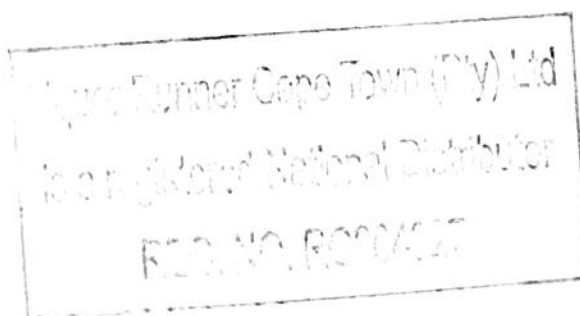 Runner Cape Town (Pty) Ltd
is a registered National Distributor
REG. NO.